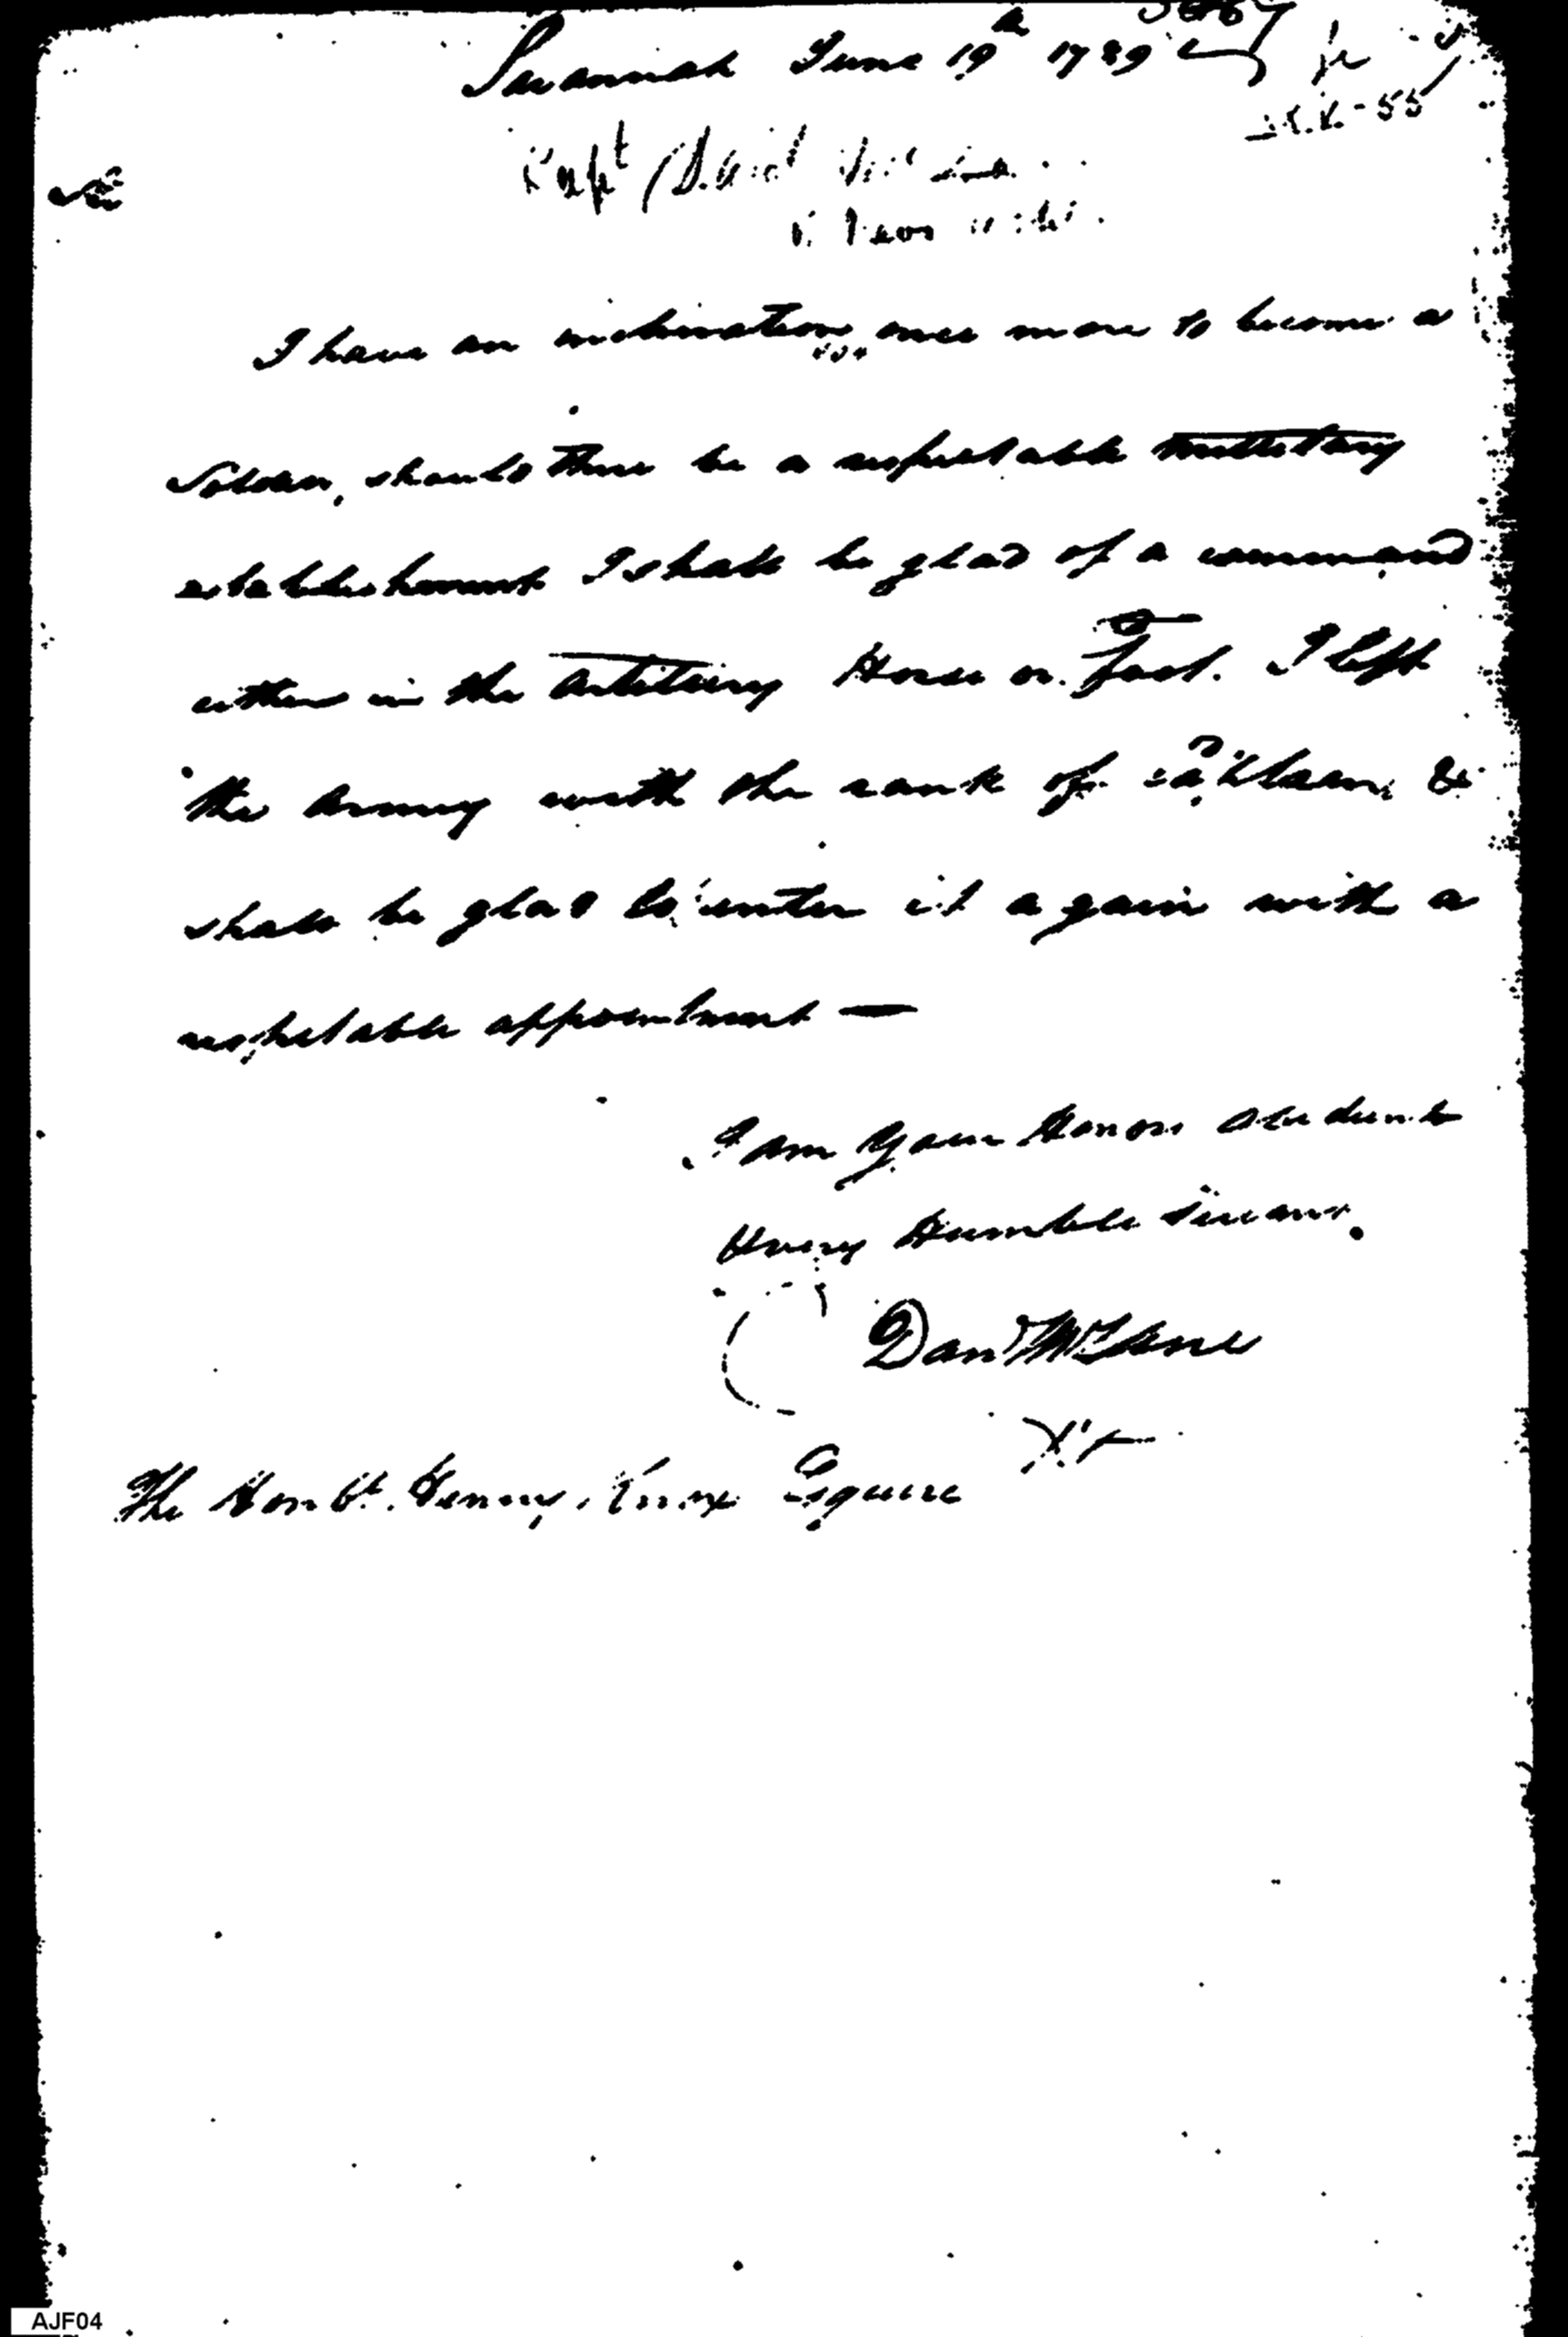 Savannah June 19th 1789
Capt David
Sir
I have an inclination once more to become a
Soldier, should there be a respectable Millitary
establishment I shall be glad of a command
either in the Artillery Horse or Foot. I left
the Army with the rank of Captain, &
shall be glad to enter it again with a
respectable appointment —
I am your Honors obedient
Very Humble Servant.
Danl McLane
The Honble. Henry Knox Esquire
AJF04